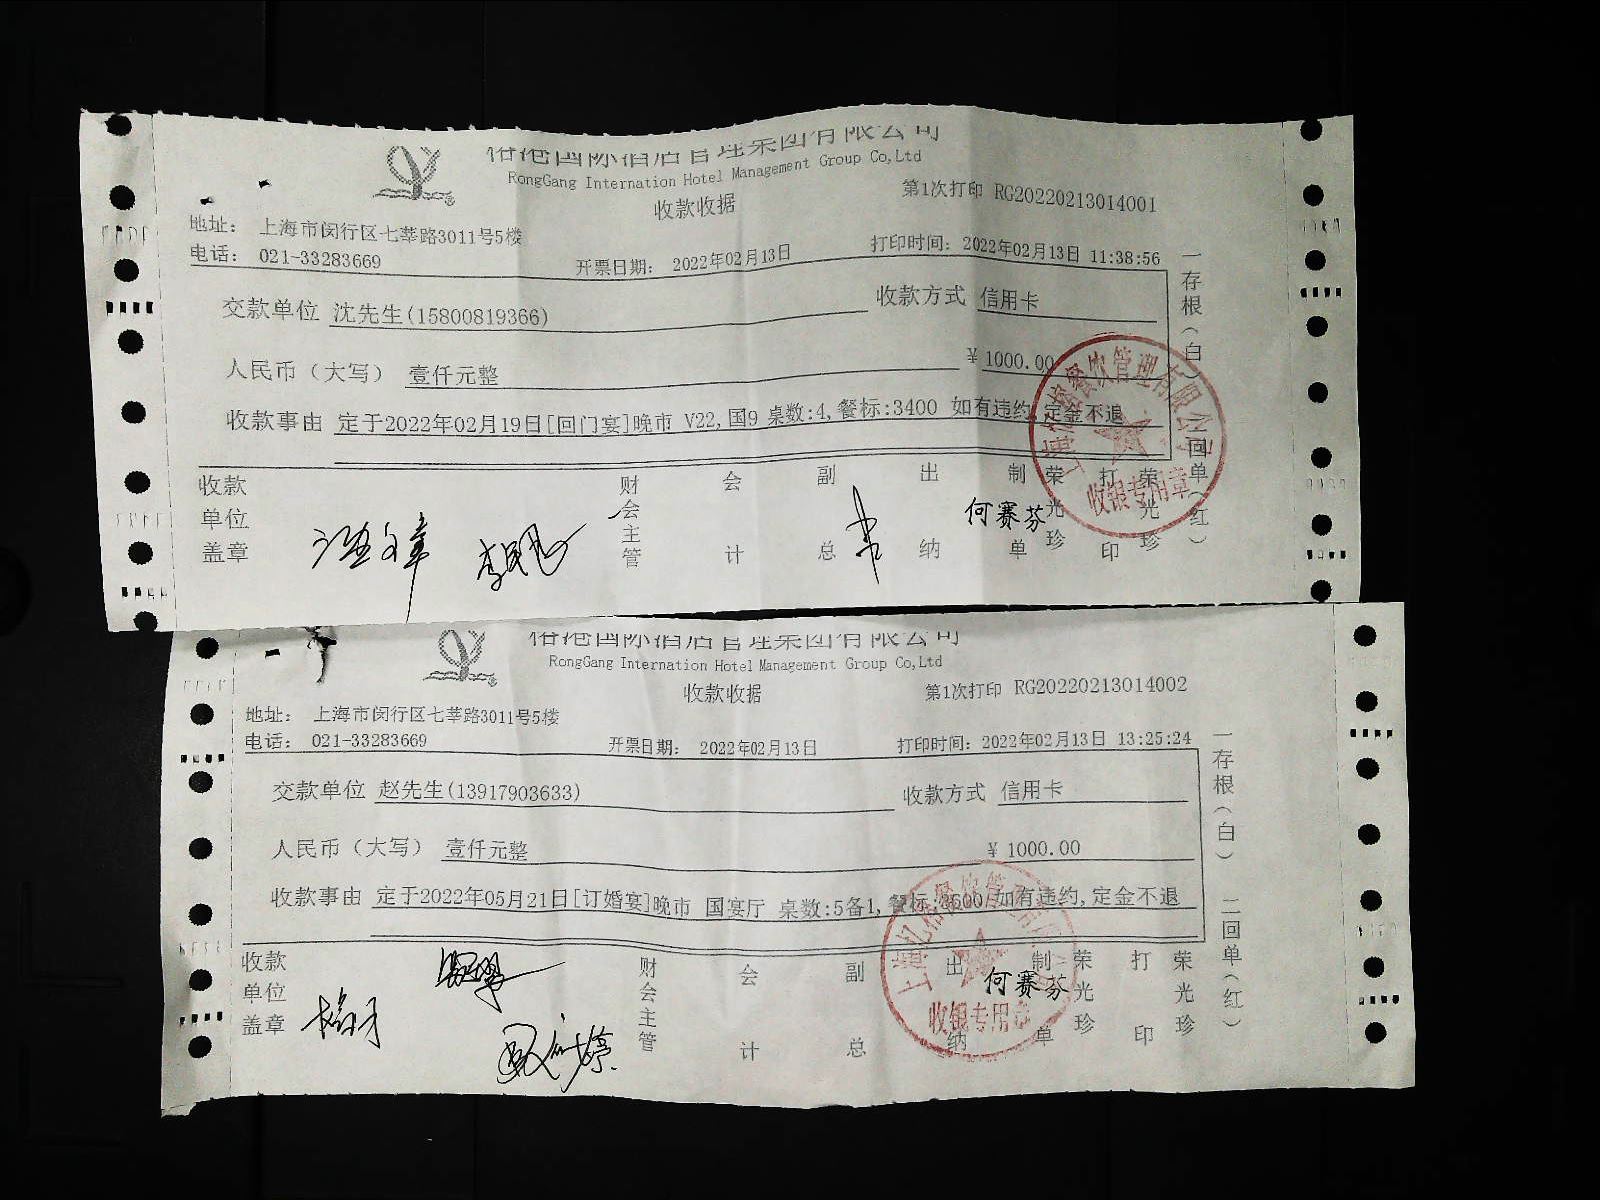 裕港国际酒店管理集团有限公司
RongGang Internation Hotel Management Group Co,Ltd
收款收据
第1次打印 RG20220213014001
地址： 上海市闵行区七莘路3011号5楼
电话： 021-33283669
开票日期： 2022年02月13日
打印时间：2022年02月13日 11:38:56
交款单位 沈先生(15800819366)
收款方式 信用卡
人民币（大写） 壹仟元整
¥ 1000.00
收款事由 定于2022年02月19日[回门宴]晚市 V22,国9 桌数:4,餐标:3400 如有违约,定金不退
收款单位盖章
财会主管
会计
副总
出纳
何赛芬
制单 荣光珍
打印 荣光珍
一存根（白）
二回单（红）
餐饮管理有限公司
收银专用章
裕港国际酒店管理集团有限公司
RongGang Internation Hotel Management Group Co,Ltd
收款收据
第1次打印 RG20220213014002
地址： 上海市闵行区七莘路3011号5楼
电话： 021-33283669
开票日期： 2022年02月13日
打印时间：2022年02月13日 13:25:24
交款单位 赵先生(13917903633)
收款方式 信用卡
人民币（大写） 壹仟元整
¥ 1000.00
收款事由 定于2022年05月21日[订婚宴]晚市 国宴厅 桌数:5备1,餐标:3600 如有违约,定金不退
收款单位盖章
财会主管
会计
副总
出纳
何赛芬
制单 荣光珍
打印 荣光珍
一存根（白）
二回单（红）
收银专用章